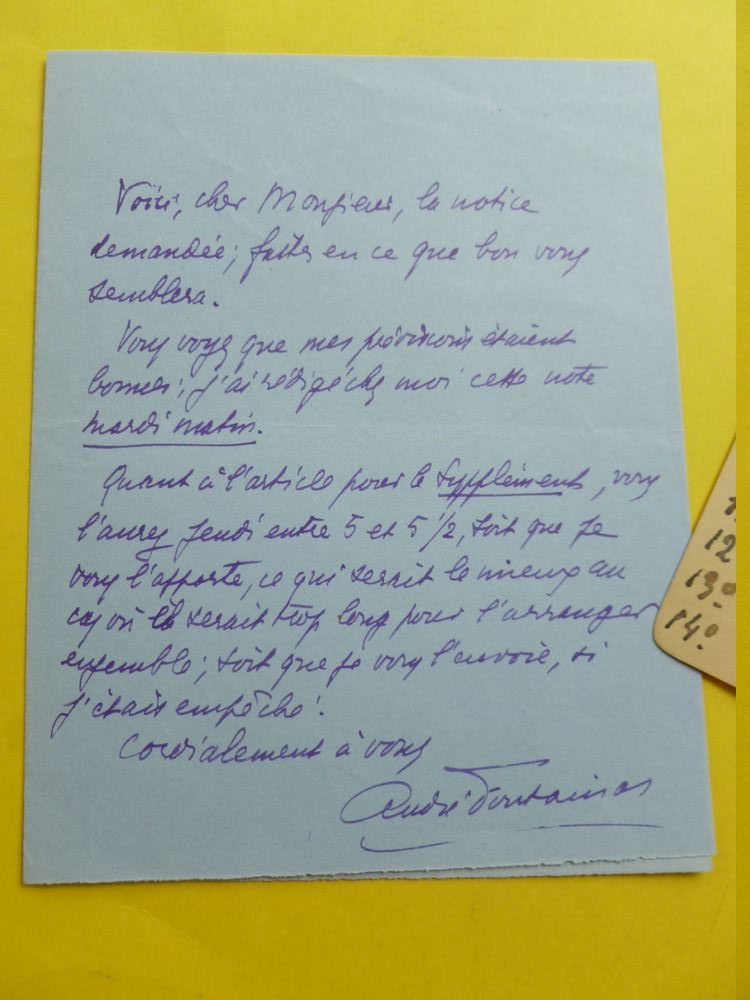 Voici, cher Monsieur, la notice
demandée; faites en ce que bon vous
semblera.
Vous voyez que mes prévisions étaient
bonnes; j'ai rédigé chez moi cette note
mardi matin.
Quant à l'article pour le Supplément, vous
l'aurez jeudi entre 5 et 5 1/2, soit que je
vous l'apporte, ce qui serait le mieux au
cas où il serait trop long pour l'arranger
ensemble; soit que je vous l'envoie, si
j'étais empêché.
Cordialement à vous
André Fontainas
12
13º
14º